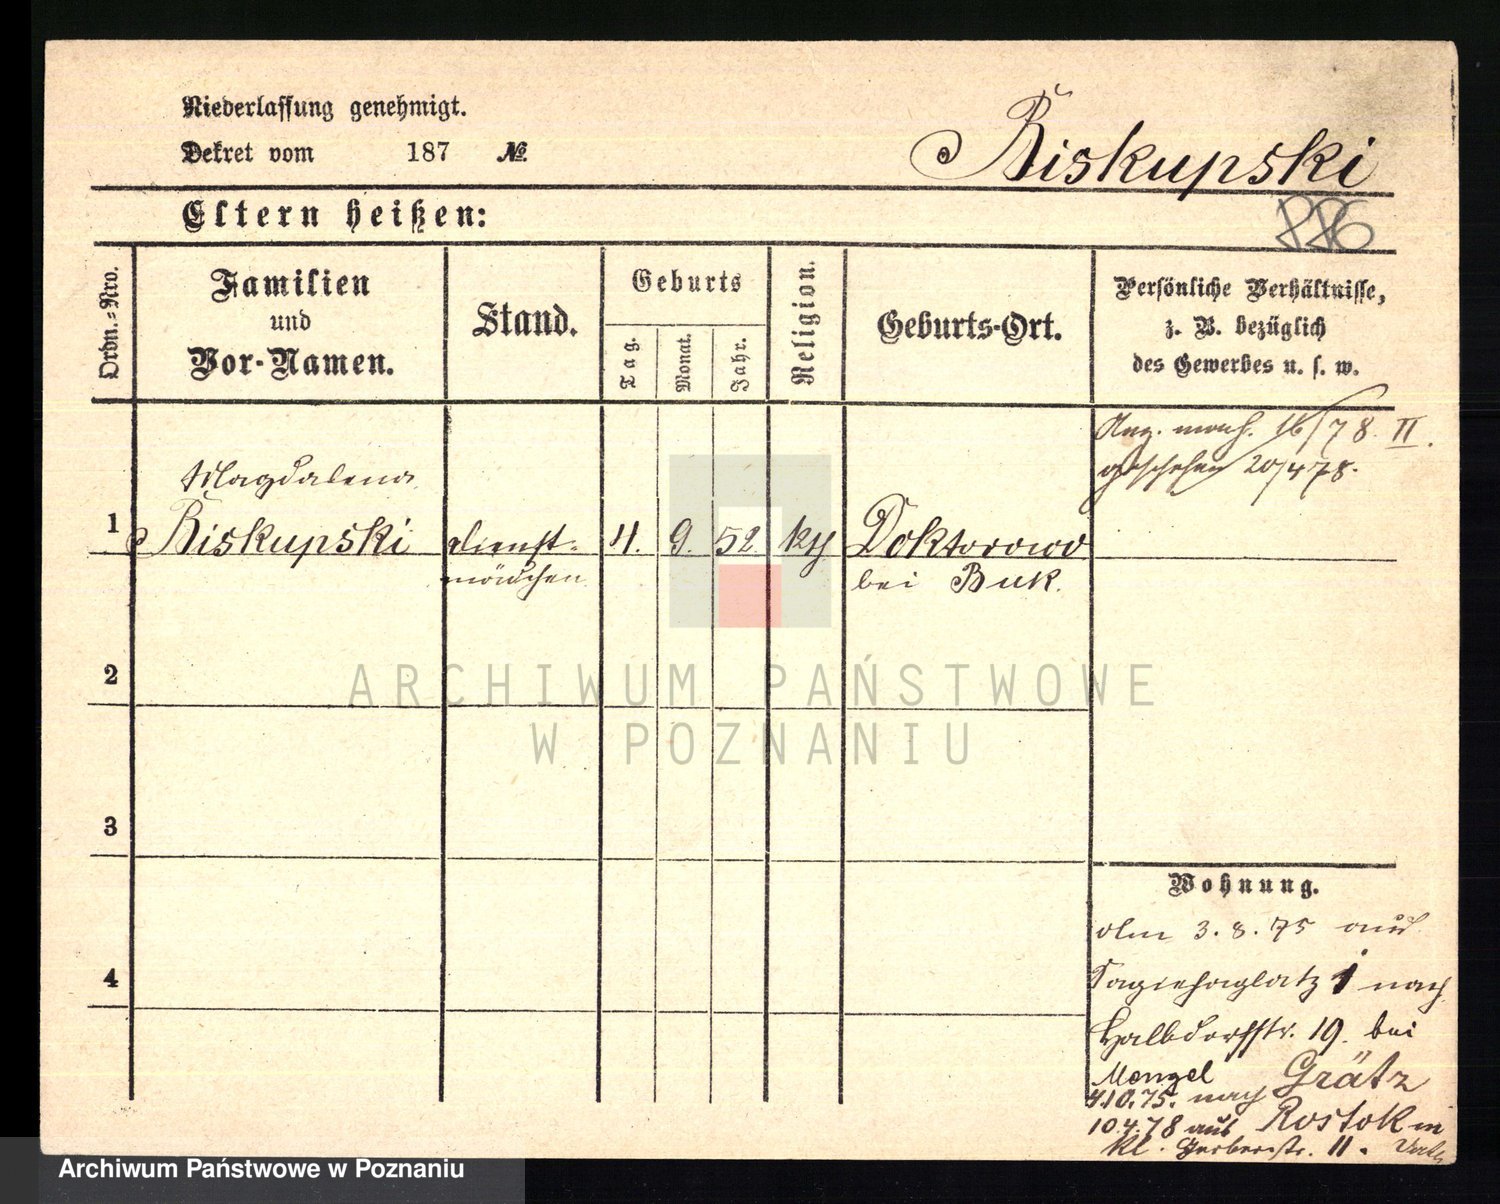 Niederlassung genehmigt.
Dekret vom 187 №
Biskupski
Eltern heißen:
886
Ordn.-Nro.
Familien
und
Vor-Namen.
Stand.
Geburts
Tag.
Monat.
Jahr.
Religion.
Geburts-Ort.
Persönliche Verhältnisse,
z. B. bezüglich
des Gewerbes u. s. w.
16/78. II.
geschehen 20/4 78.
Magdalena
1 Biskupski Dienst- 4. 9. 52 kth Doktorowo
mädchen bei Buk.
2
3
4
Wohnung.
3. 8. 75 aus
Sapiehaplatz 1 nach
Halbdorfstr. 19. bei
Mengel
10. 75. nach Grätz
10.4.78 aus Rostok in
kl. Gerberstr. 11.
ARCHIWUM PAŃSTWOWE
W POZNANIU
Archiwum Państwowe w Poznaniu